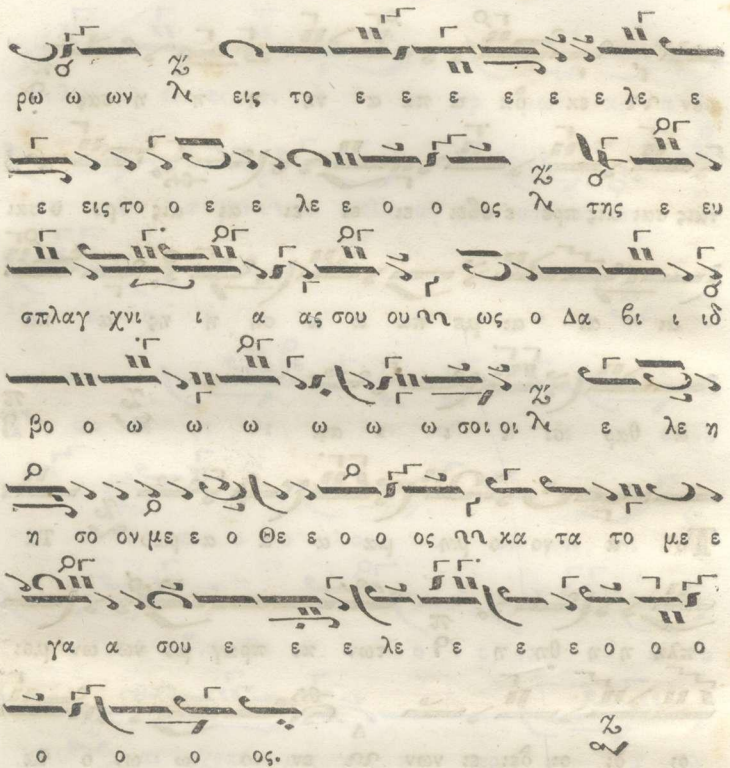 ρω ω ων εις το ε ε ε ε ε ε λε ε ε
ε εις το ο ε ε λε ε ο ο ος της ε ευ
σπλαγ χνι ι α ας σου ου ως ο Δα βι ι ιδ
βο ο ω ω ω ω ω ω σοι οι ε λε η
η σο ον με ε ο Θε ε ο ο ος κα τα το με ε
γα α σου ε ε ε λε ε ε ε ο ο ο
ο ο ο ος.